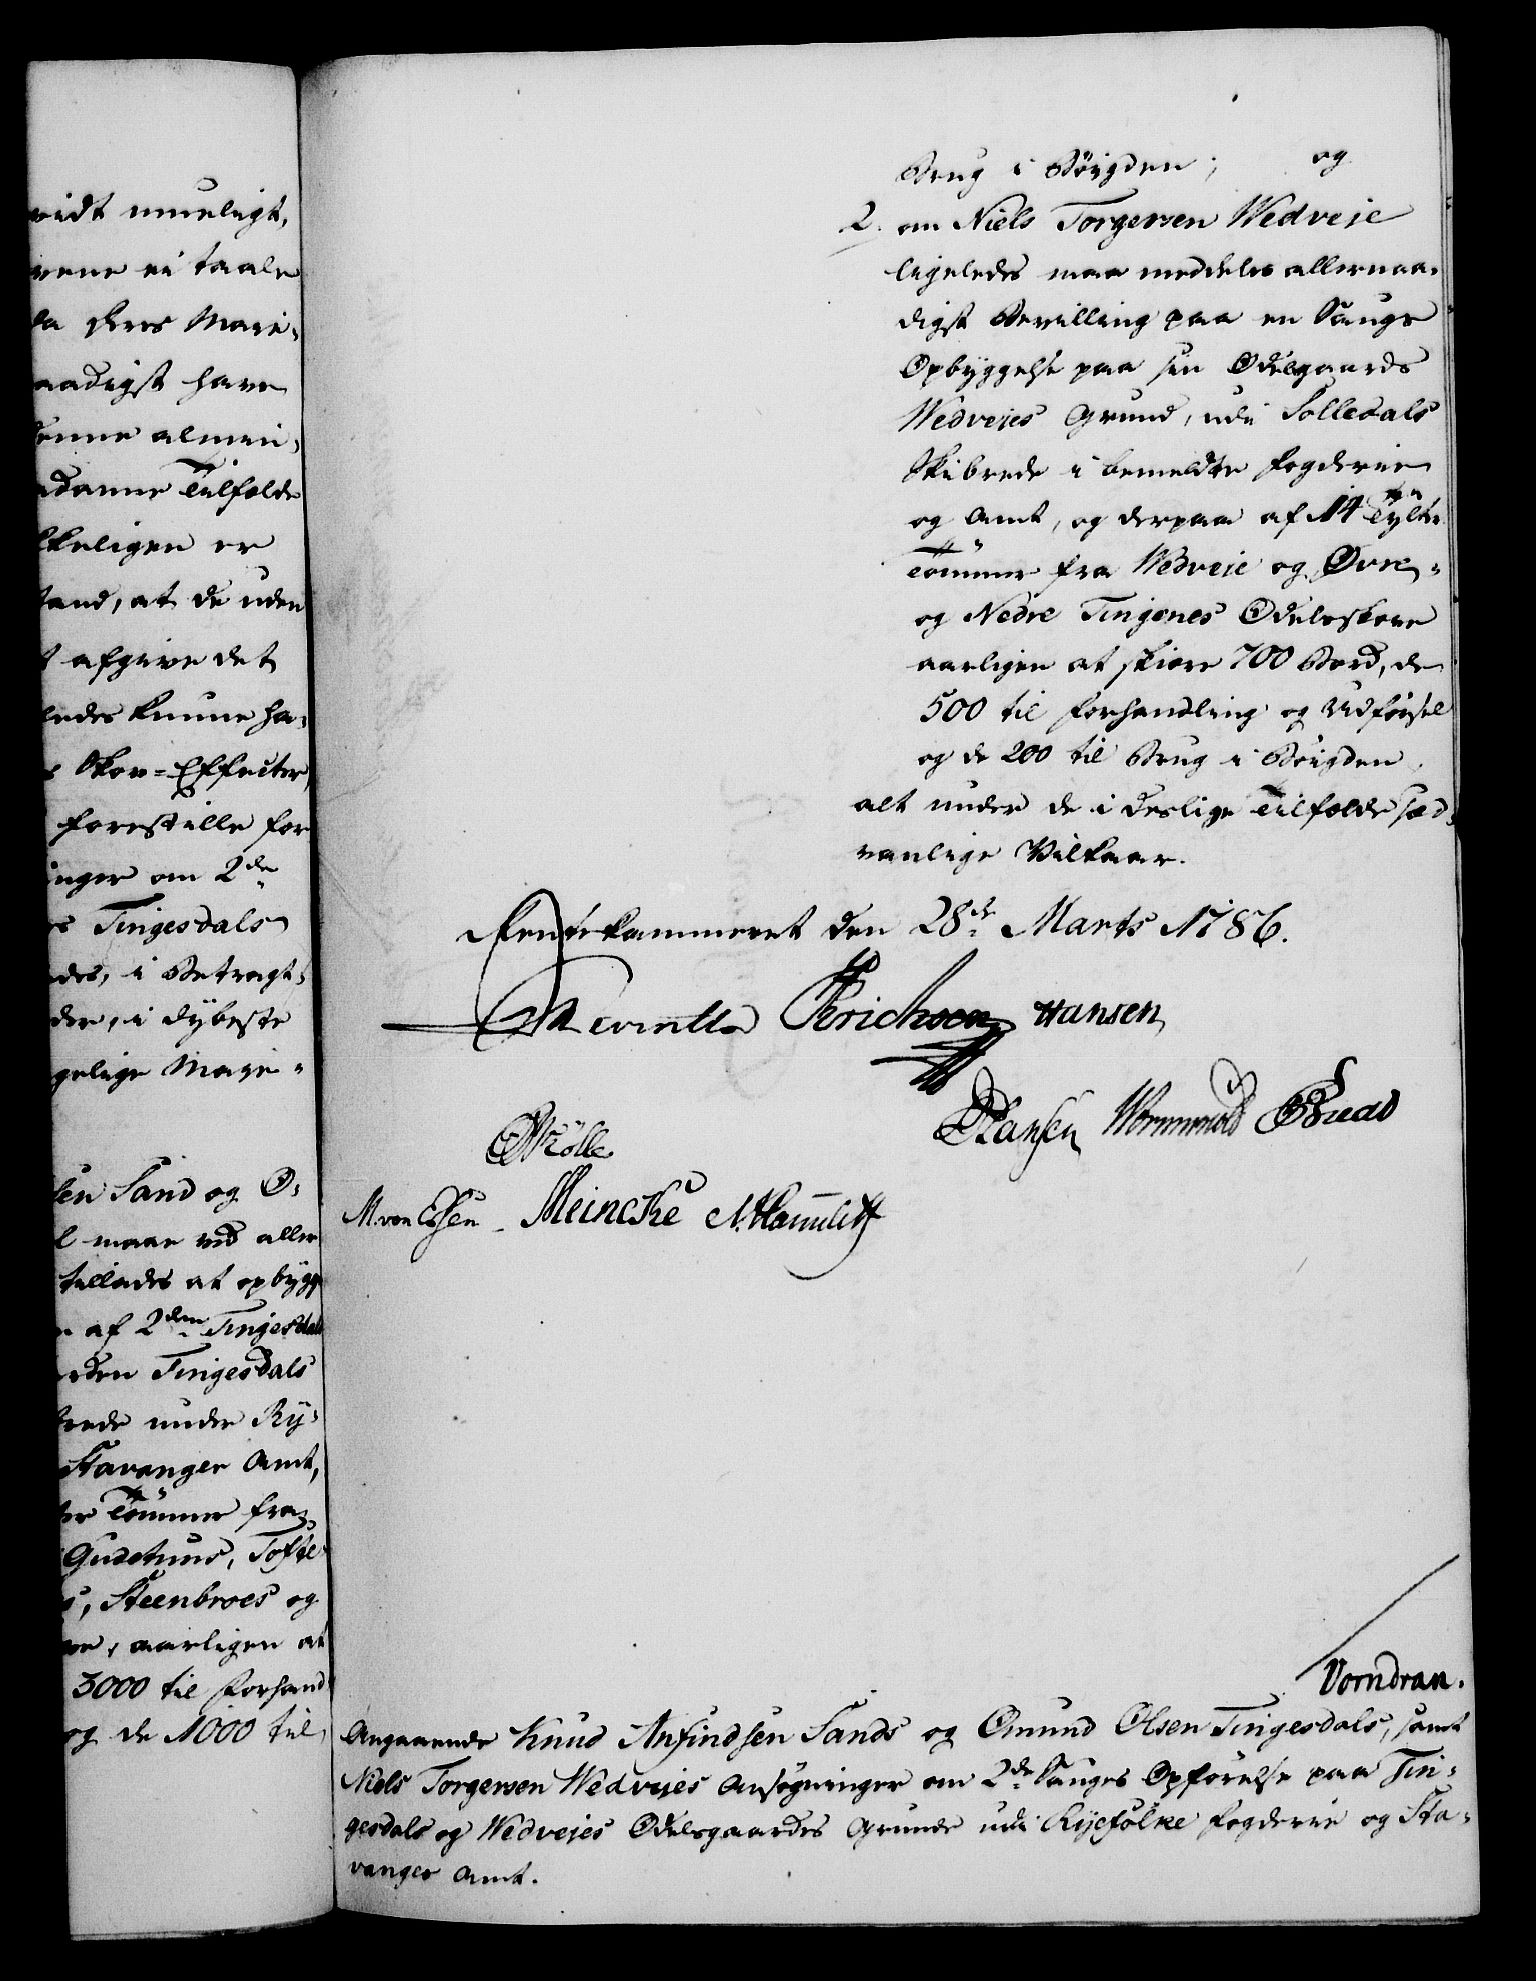 vidt mueligt,
vene ei taale
da Deres Maje-
naadigst have
denne almin-
adanne Tilfælde
lkeligen er
tand, at de uden
t afgive det
ledes kunne ha-
s Skov-Effecter,
forestille for
inger om 2de
es Tingesdals
des, i Betragt-
der, i dybeste
gelige Maje-
sen Sand og O-
l maae ved aller
tillades at opbygg
n af 2den Tingesdals
arden Tingesdals
brede under Ry-
Stavanger Amt,
ter Tømmer fra
Gudetuns, Tofte-
s, Steenbroes og
ve, aarligen at
3000 til Forhand
og de 1000 til
Brug i Bøigden; og
2. om Niels Torgersen Wedveje
ligeledes maa meddeles allernaa-
digst Bevilling paa en Saugs
Opbyggelse paa sin Odelsgaards
Wedvejes Grund, udi Solledals
Skibrede i bemeldte Fogderie
og Amt, og derpaa af 14 Tylter
Tømmer fra Wedveje og Øvre-
og Nedre Tingones Odelsskove
aarligen at skiære 700 Bord, de
500 til Forhandling og Udførsel
og de 200 til Brug i Bøigden,
alt under de i deslige Tilfælde sæd-
vanlige Vilkaar.
Rentekammeret den 28de Marts 1786.
Erichsen Hansen
CHansen Wormskiold
Mölle
M. von Essen Meincke
Vorndran.
Angaaende Knud Anfindsen Sands og Omund Olsen Tingesdals, samt
Niels Torgersen Wedvejes Ansøgninger om 2de Sauges Opførelse paa Tin-
gesdals og Wedvejes Odelsgaardes Grunde udi Ryefølke Fogderie og Sta-
vanger Amt.